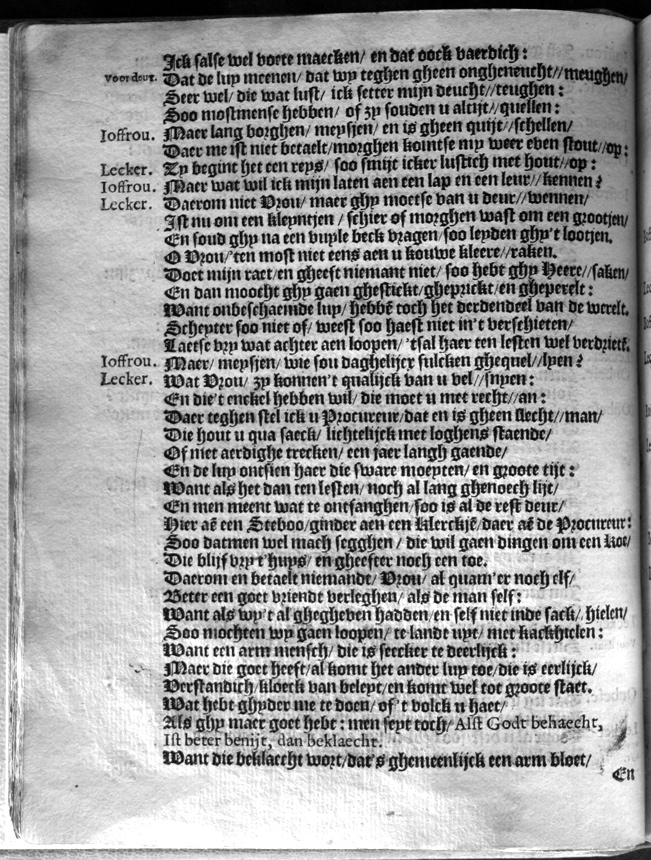 Ick salse wel voete maecken/ en dat oock vaerdich:
voor deur. Dat de luy meenen/ dat wy teghen gheen ongheneucht//meughen/
Seer wel/ die wat lust/ ick setter mijn deucht//teughen:
Soo mostmense hebben/ of zy souden u altijt//quellen:
Ioffrou. Maer lang borghen/ meysjen/ en is gheen quijt//schellen/
Daer me ist niet betaelt/morghen komtse my weer even stout//op:
Lecker. Zy begint het een reys/ soo smijt icker lustich met hout//op:
Ioffrou. Maer wat wil ick mijn laten aen een lap en een leur//kennen?
Lecker. Daerom niet Vrou/ maer ghy moetse van u deur//wennen/
Ist nu om een kleyntjen/ schier of morghen wast om een grootjen/
En soud ghy na een vuyle beck vragen/ soo leyden ghy't lootjen.
O Vrou/'ten most niet eens aen u kouwe kleere//raken.
Doet mijn raet/en gheeft niemant niet/ soo hebt ghy Heere//saken/
En dan moocht ghy gaen ghestickt/gheprickt/en gheperelt:
Want onbeschaemde luy/ hebbē toch het derdendeel van de werelt.
Scheyter soo niet of/ weest soo haest niet in't verschieten/
Laetse vry wat achter aen loopen/ 'tsal haer ten lesten wel verdrietē.
Ioffrou. Maer/ meysjen/ wie sou daghelijcx sulcken ghequel//lyen?
Lecker. Wat Vrou/ zy konnen't qualijck van u vel//snyen:
En die't enckel hebben wil/ die moet u met recht//an:
Daer teghen stel ick u Procureur/dat en is gheen slecht//man/
Die hout u qua saeck/ lichtelijck met loghens staende/
Of met aerdighe trecken/ een jaer langh gaende/
En de luy ontsien haer die sware moeyten/ en groote tijt:
Want als het dan ten lesten/ noch al lang ghenoech lijt/
En men meent wat te ontfanghen/soo is al de rest deur/
Hier aē een Steboo/ginder aen een Klerckjē/daer aē de Procureur:
Soo datmen wel mach segghen/ die wil gaen dingen om een Koe/
Die blijf vry t'huys/ en gheefter noch een toe.
Daerom en betaelt niemandt/ Vrou/ al quam'er noch elf/
Beter een goet vriendt verleghen/ als de man self:
Want als wy't al ghegheven hadden/en self niet inde sack/ hielen/
Soo mochten wy gaen loopen/ te landt uyt/ met kackhielen:
Want een arm mensch/ die is seecker te deerlijck:
Maer die goet heeft/al komt het ander luy toe/die is eerlijck/
Verstandich/kloeck van beleyt/en komt wel tot groote staet.
Wat hebt ghyder me te doen/ of't volck u haet/
Als ghy maer goet hebt: men seyt toch/ Alst Godt behaecht,
Ist beter benijt, dan beklaecht.
Want die beklaecht wort/dat's ghemeenlijck een arm bloet/
En